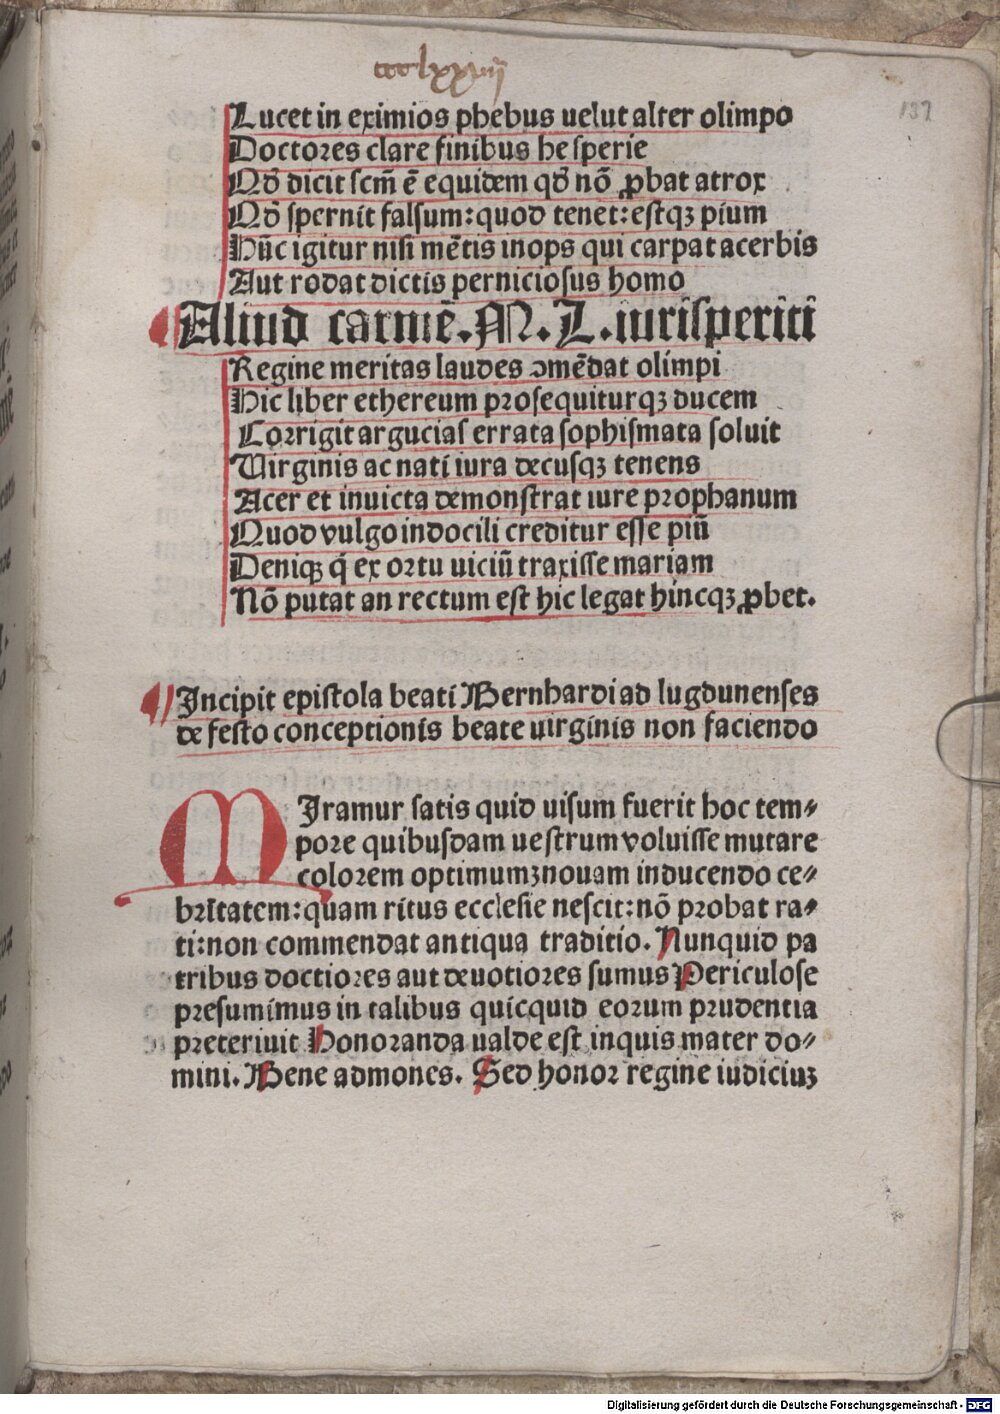 ccclxxviij
137
Lucet in eximios phebus uelut alter olimpo
Doctores clare finibus hesperie
Qđ dicit scm̄ ē equidem qđ nō ꝓbat atrox
Qđ spernit falsum: quod tenet: estqꝫ pium
Hūc igitur nisi mētis inops qui carpat acerbis
Aut rodat dictis perniciosus homo
Aliud carmē. M. L. iurisperiti
Regine meritas laudes ↄmēdat olimpi
Hic liber ethereum prosequiturqꝫ ducem
Corrigit argucias errata sophismata soluit
Virginis ac nati iura decusqꝫ tenens
Acer et inuicta demonstrat iure prophanum
Quod vulgo indocili creditur esse piū
Deniqꝫ q̄ ex ortu uiciū traxisse mariam
Nō putat an rectum est hic legat hincqꝫ ꝓbet.
Incipit epistola beati Bernhardi ad lugdunenses
de festo conceptionis beate uirginis non faciendo
Miramur satis quid uisum fuerit hoc tem⸗
pore quibusdam uestrum voluisse mutare
colorem optimumꝫ nouam inducendo ce⸗
britatem: quam ritus ecclesie nescit: nō probat ra⸗
ti: non commendat antiqua traditio. Nunquid pa
tribus doctiores aut deuotiores sumus Periculose
presumimus in talibus quicquid eorum prudentia
preteriuit Honoranda ualde est inquis mater do⸗
mini. Bene admones. Sed honor regine iudiciuꝫ
Digitalisierung gefördert durch die Deutsche Forschungsgemeinschaft - DFG